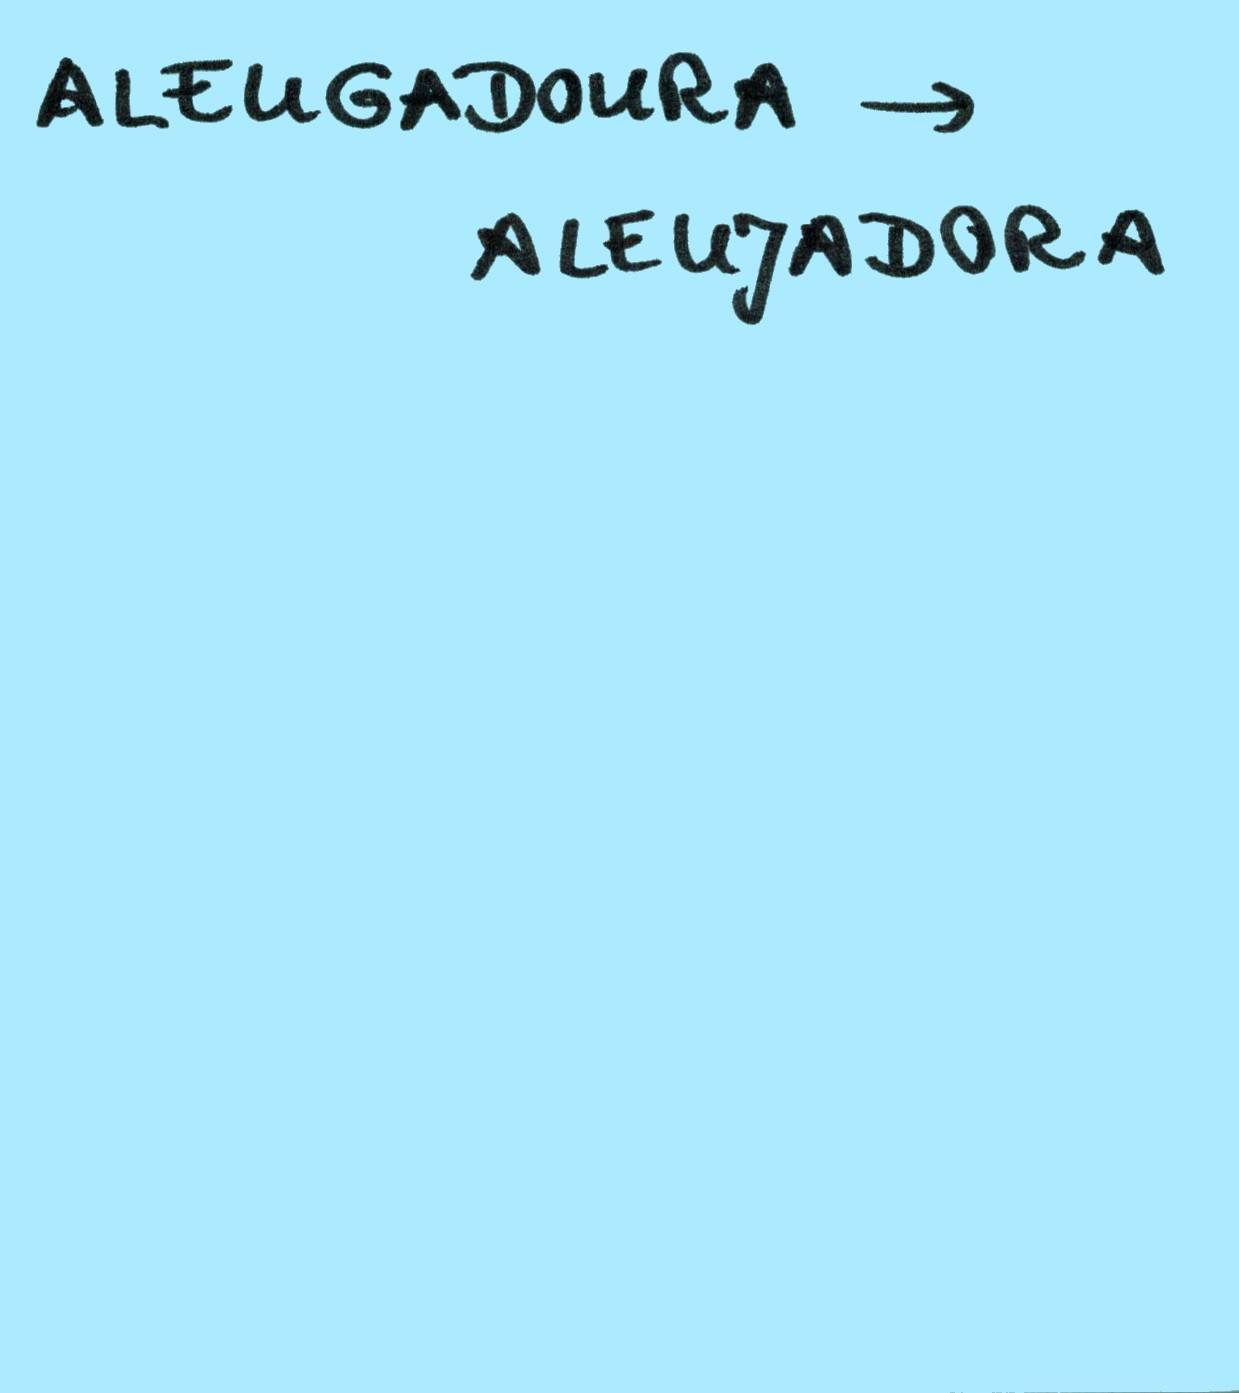 ALEUGADOURA →
ALEUJADORA